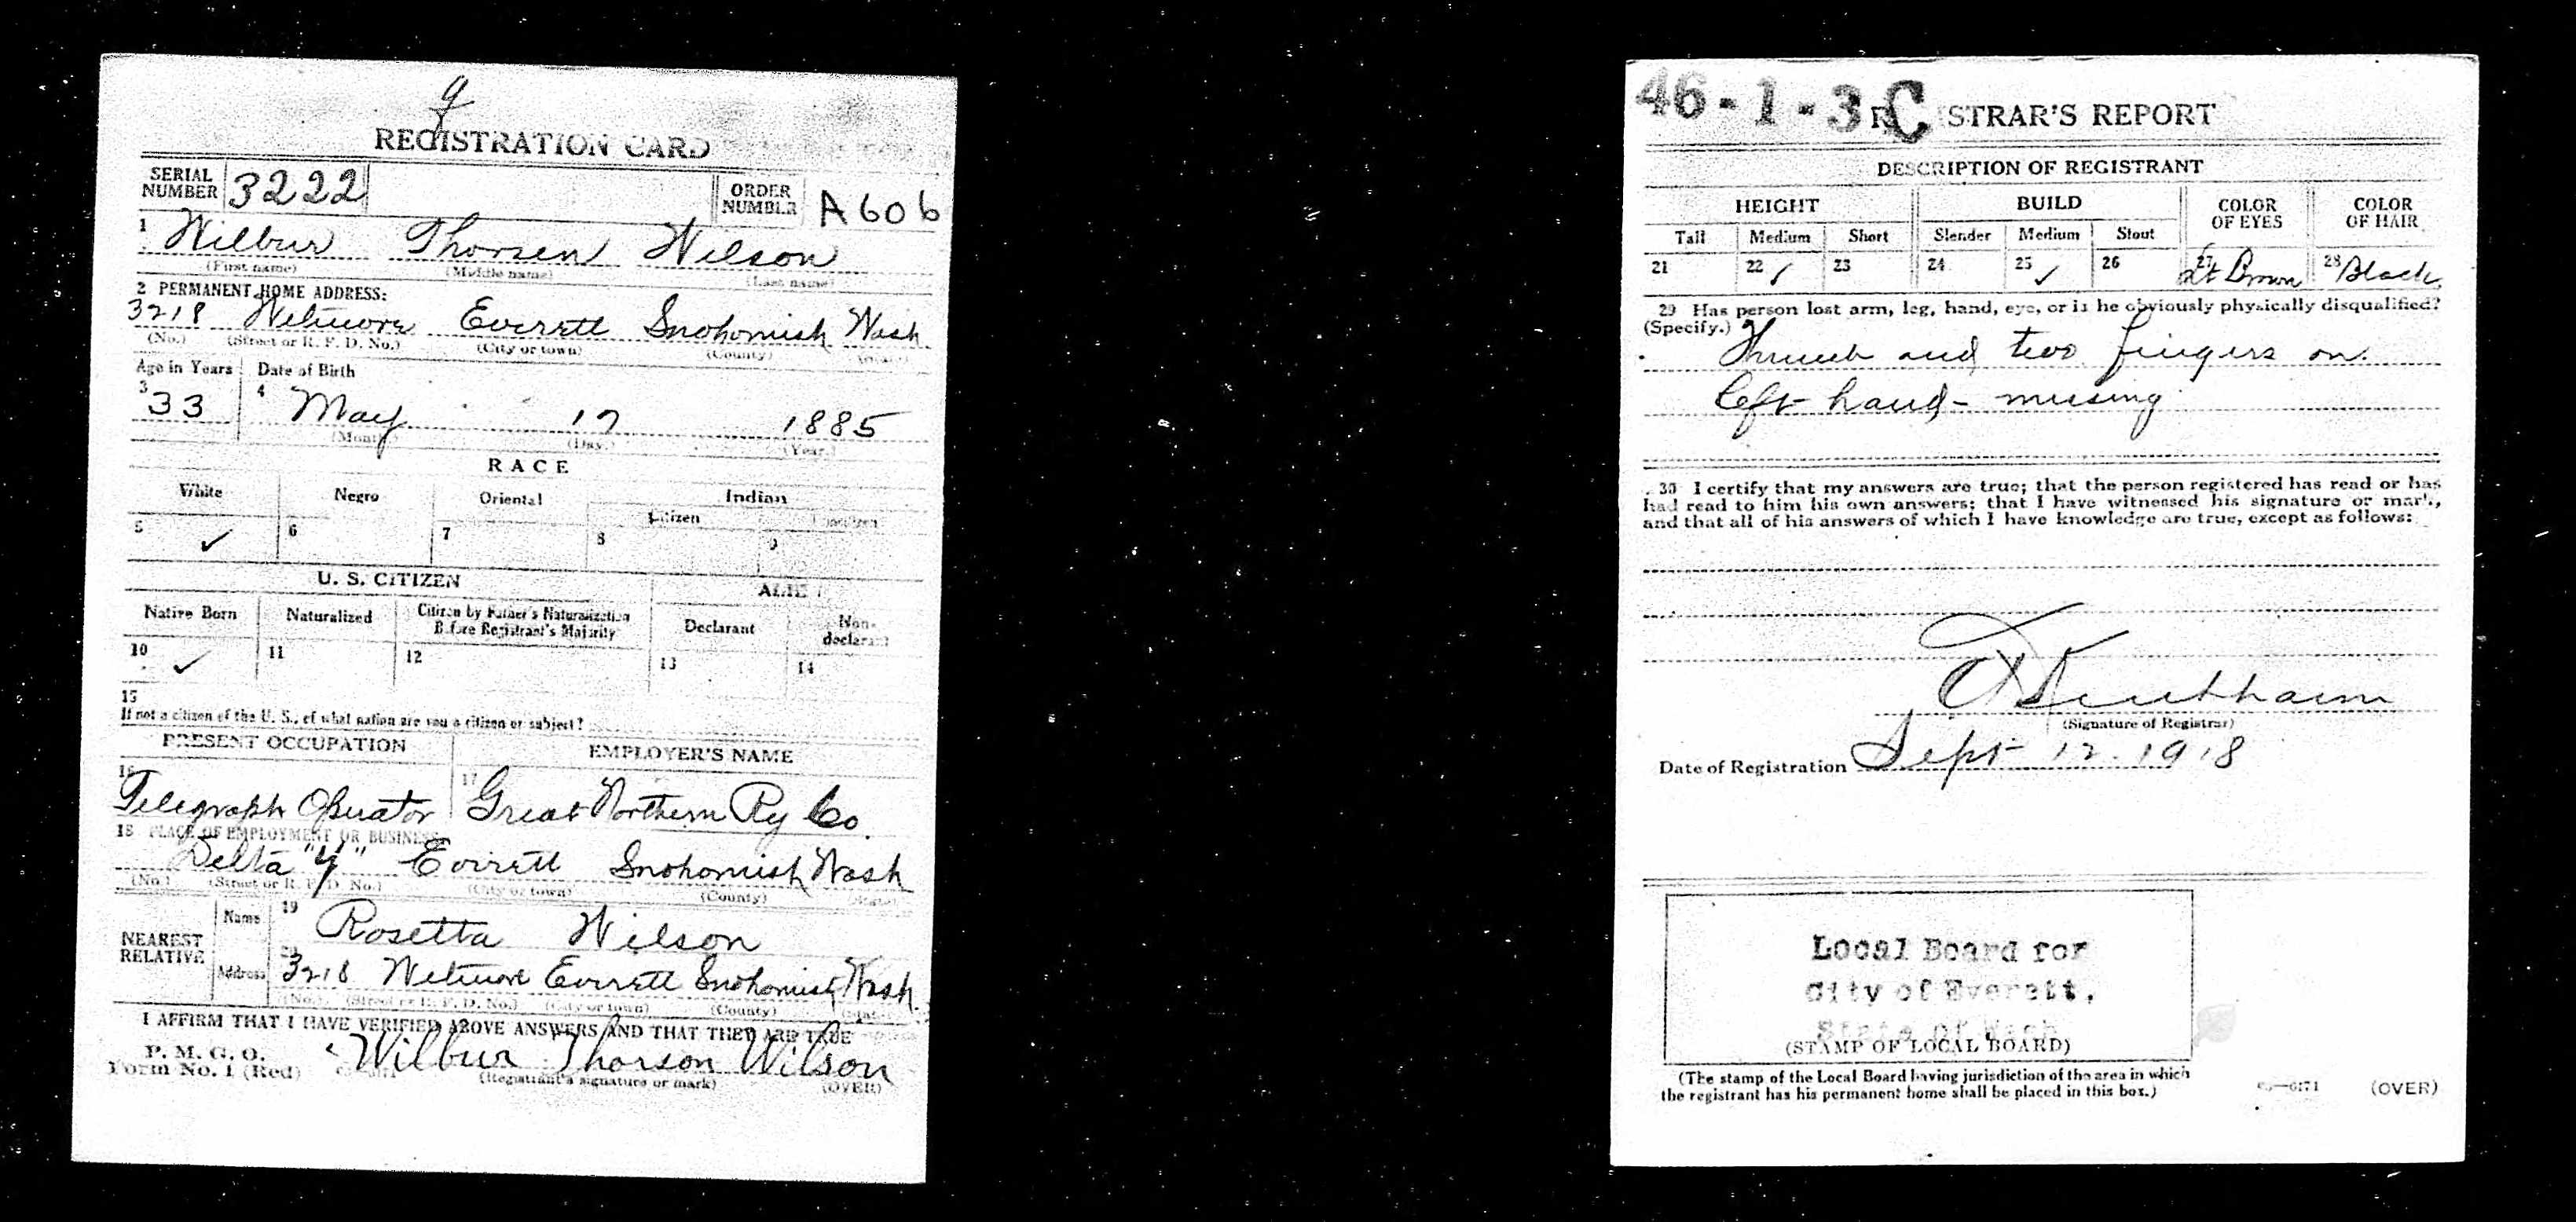 REGISTRATION CARD
SERIAL NUMBER 3222 ORDER NUMBER A606
1 Wilbur Thorsen Wilson
(First name) (Middle name) (Last name)
2 PERMANENT HOME ADDRESS:
3218 Wetmore Everett Snohomish Wash
(No.) (Street or R. F. D. No.) (City or town) (County) (State)
Age in Years Date of Birth
3 33 4 May 17 1885
(Month.) (Day.) (Year.)
RACE
White Negro Oriental Indian
Citizen Noncitizen
5 ✓ 6 7 8 9
U. S. CITIZEN ALIEN
Native Born Naturalized Citizen by Father's Naturalization Before Registrant's Majority Declarant Non-declarant
10 ✓ 11 12 13 14
15
If not a citizen of the U. S., of what nation are you a citizen or subject?
PRESENT OCCUPATION EMPLOYER'S NAME
16 Telegraph Operator 17 Great Northern Ry Co.
18 PLACE OF EMPLOYMENT OR BUSINESS
Delta "Y" Everett Snohomish Wash
(No.) (Street or R. F. D. No.) (City or town) (County) (State)
NEAREST RELATIVE
Name 19 Rosetta Wilson
Address 20 3218 Wetmore Everett Snohomish Wash.
(No.) (Street or R. F. D. No.) (City or town) (County) (State)
I AFFIRM THAT I HAVE VERIFIED ABOVE ANSWERS AND THAT THEY ARE TRUE
P. M. G. O.
Form No. 1 (Red) Wilbur Thorson Wilson
(Registrant's signature or mark) (OVER)
46-1-3 C
REGISTRAR'S REPORT
DESCRIPTION OF REGISTRANT
HEIGHT BUILD COLOR OF EYES COLOR OF HAIR
Tall Medium Short Slender Medium Stout
21 22 ✓ 23 24 25 ✓ 26 27 Lt Brown 28 Black
29 Has person lost arm, leg, hand, eye, or is he obviously physically disqualified?
(Specify.) Thumb and two fingers on
left hand - missing
30 I certify that my answers are true; that the person registered has read or has
had read to him his own answers; that I have witnessed his signature or mark,
and that all of his answers of which I have knowledge are true, except as follows:
(Signature of Registrar)
Date of Registration Sept 12. 1918
Local Board for
City of Everett,
State of Wash.
(STAMP OF LOCAL BOARD)
(The stamp of the Local Board having jurisdiction of the area in which
the registrant has his permanent home shall be placed in this box.)
(OVER)